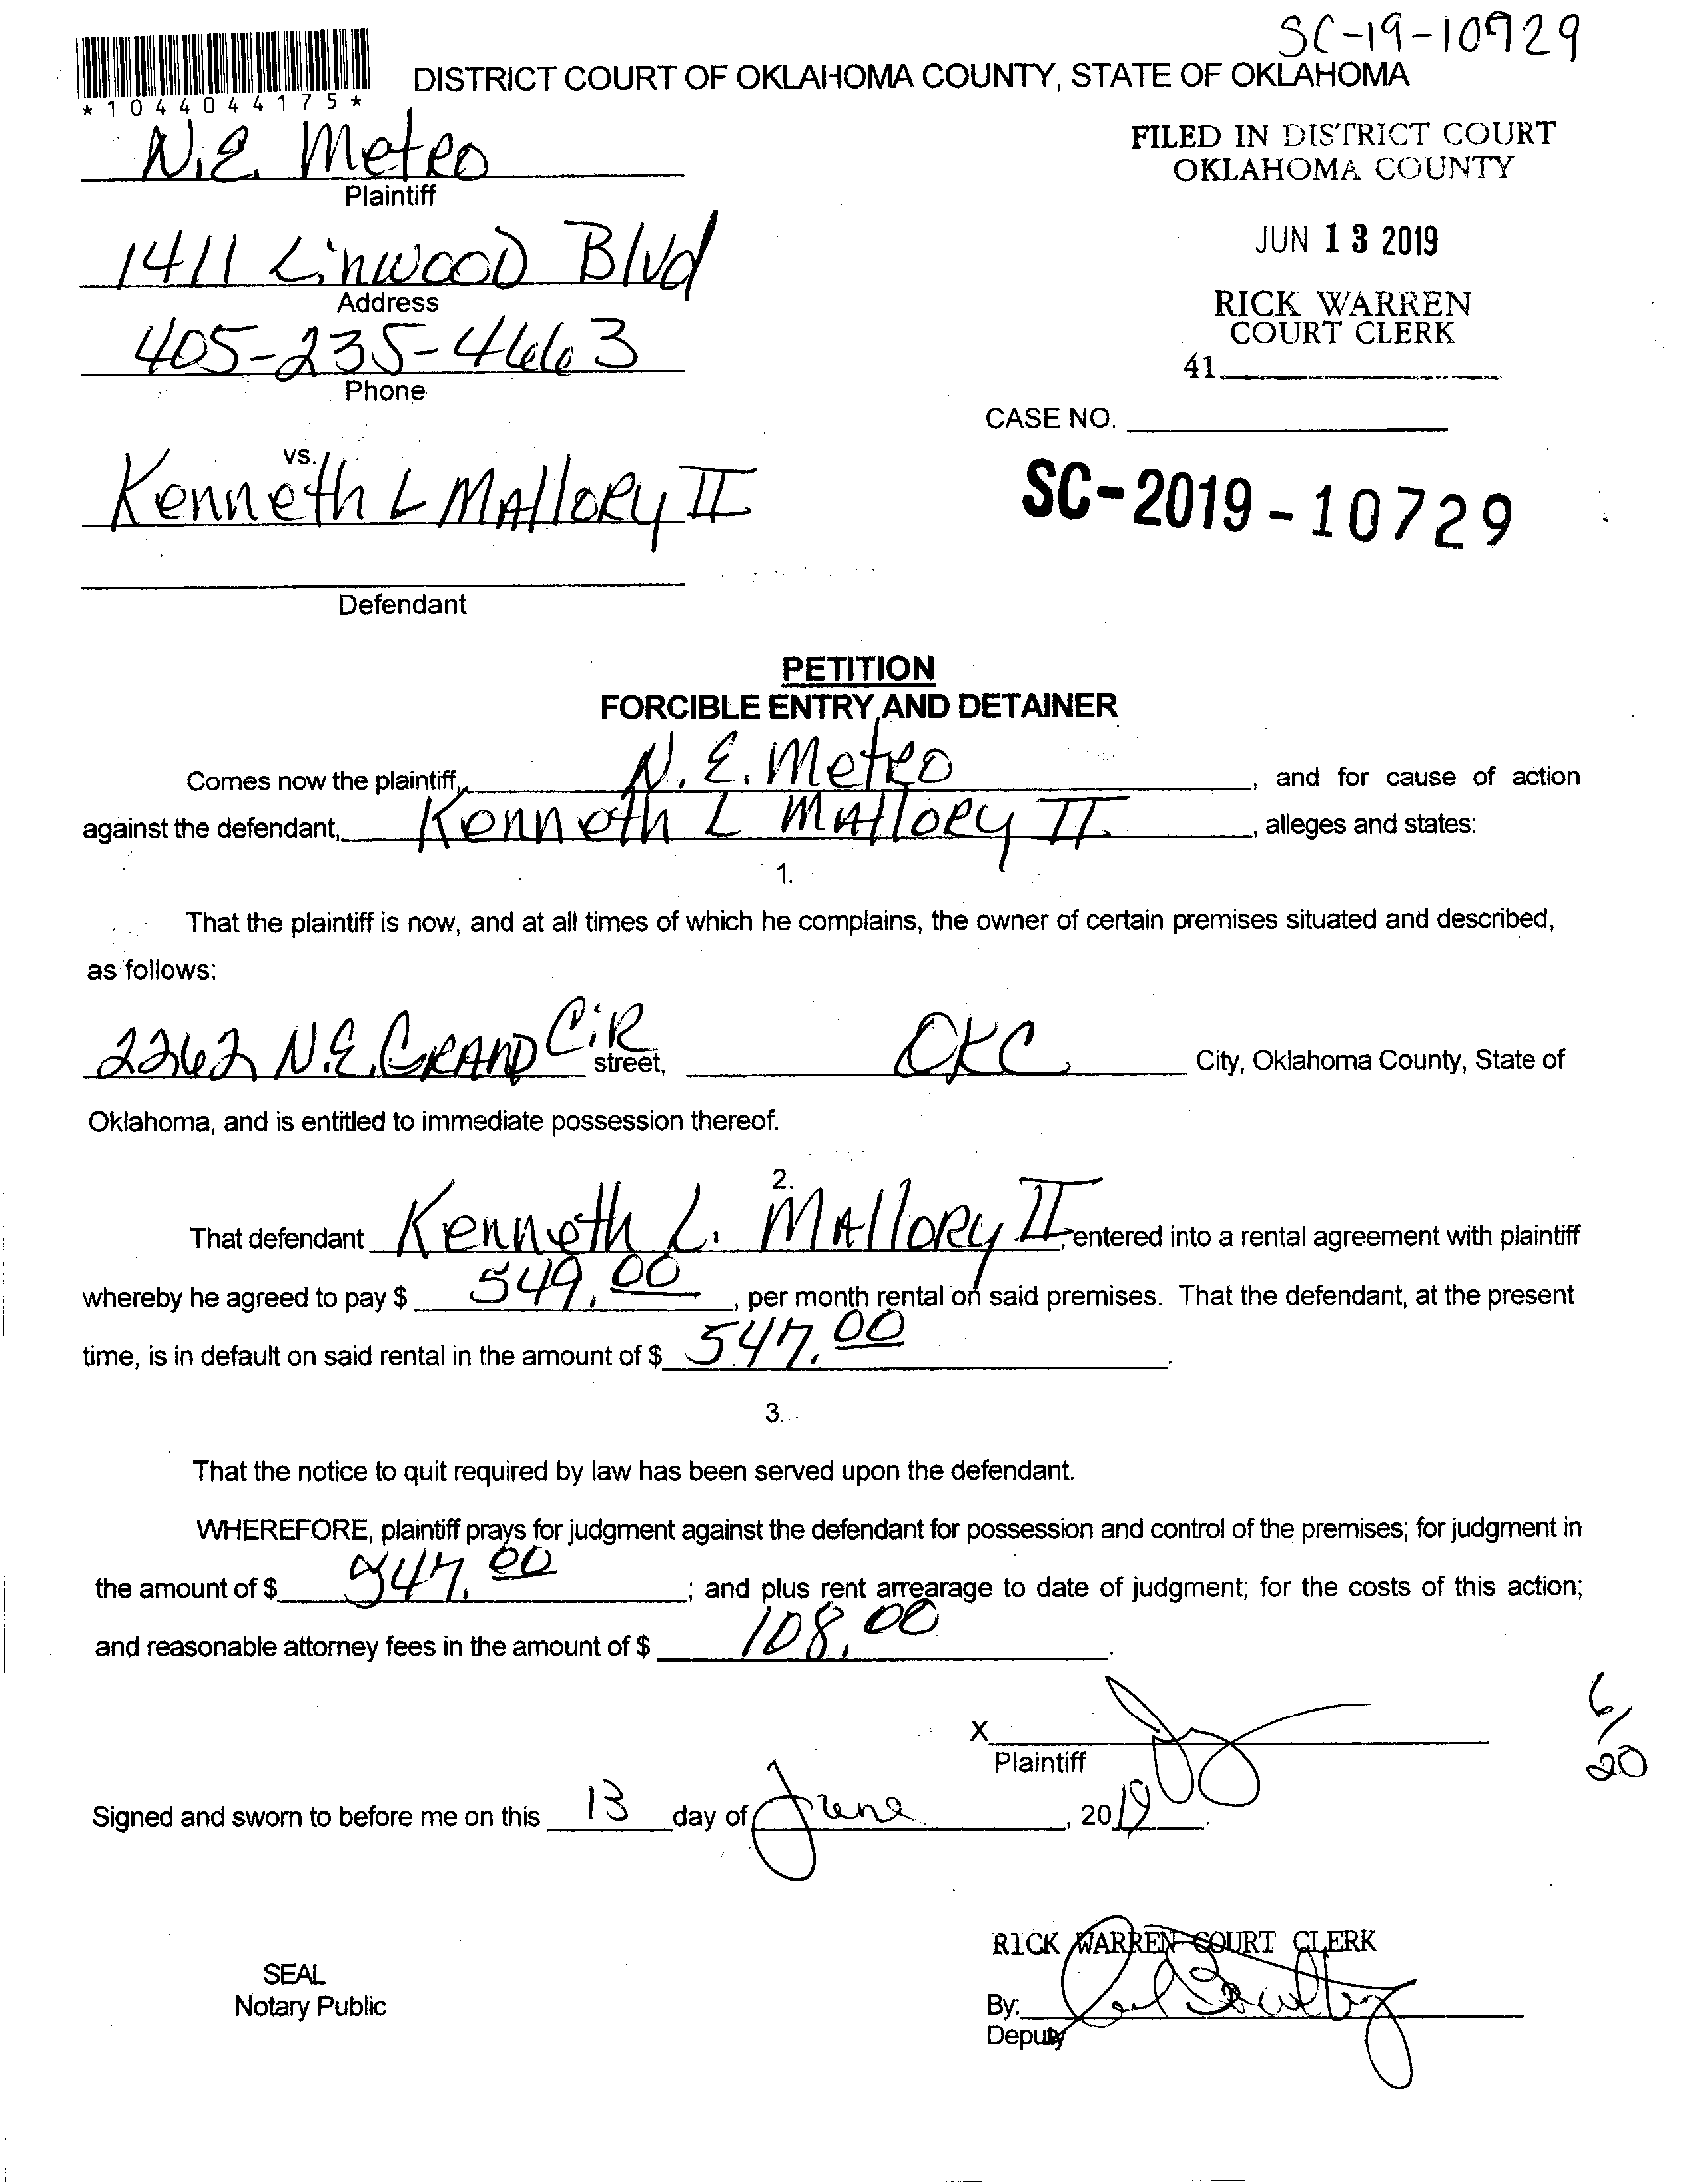 SC-19-10729
DISTRICT COURT OF OKLAHOMA COUNTY, STATE OF OKLAHOMA
*1044044175*
FILED IN DISTRICT COURT
OKLAHOMA COUNTY
N.E. Metro
Plaintiff
JUN 13 2019
1411 Linwood Blvd
Address
RICK WARREN
COURT CLERK
405-235-4663
Phone
41
CASE NO.
vs.
Kenneth L Mallory II
SC-2019-10729
Defendant
PETITION
FORCIBLE ENTRY AND DETAINER
Comes now the plaintiff, N.E. Metro, and for cause of action
against the defendant, Kenneth L Mallory II, alleges and states:
1.
That the plaintiff is now, and at all times of which he complains, the owner of certain premises situated and described,
as follows:
2262 N.E. Grand Cir street, OKC City, Oklahoma County, State of
Oklahoma, and is entitled to immediate possession thereof.
2.
That defendant Kenneth L. Mallory II, entered into a rental agreement with plaintiff
whereby he agreed to pay $ 549.00, per month rental on said premises. That the defendant, at the present
time, is in default on said rental in the amount of $ 547.00.
3.
That the notice to quit required by law has been served upon the defendant.
WHEREFORE, plaintiff prays for judgment against the defendant for possession and control of the premises; for judgment in
the amount of $ 547.00; and plus rent arrearage to date of judgment; for the costs of this action;
and reasonable attorney fees in the amount of $ 108.00.
X
Plaintiff
6/20
Signed and sworn to before me on this 13 day of June, 2019.
RICK WARREN COURT CLERK
SEAL
Notary Public
By:
Deputy